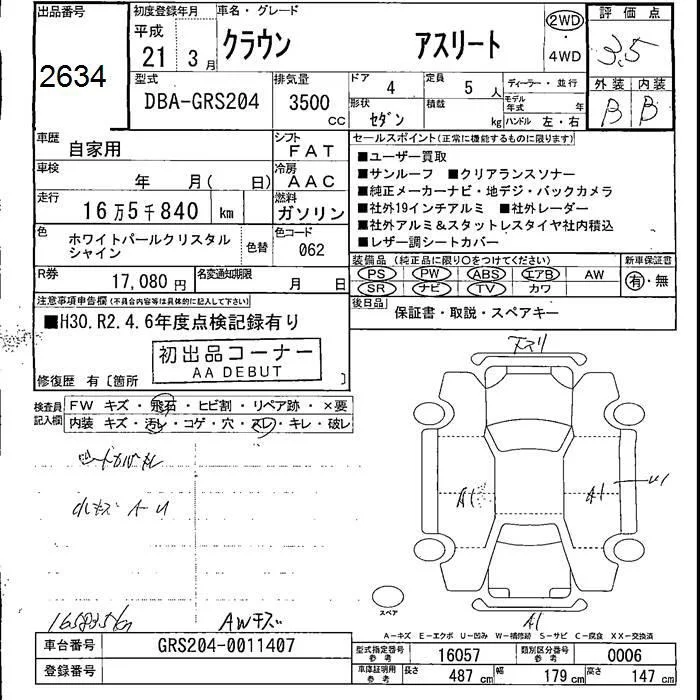 出品番号 初度登録年月 車名・グレード 評価点
2634
平成 21 3月 クラウン アスリート 2WD ・ 4WD 3.5
型式 排気量 ドア 4 定員 5人 ディーラー・並行 外装 内装
DBA-GRS204 3500 CC 形状 セダン 積載 kg モデル年式 年 ハンドル 左・右 B B
車歴 自家用 シフト FAT
車検 年 月( 日) 冷房 AAC
走行 16万5千840 km 燃料 ガソリン
色 ホワイトパールクリスタルシャイン 色替 色コード 062
R券 17,080円 名変通知期限 月 日
セールスポイント(正常に機能するものに限ります)
■ユーザー買取
■サンルーフ ■クリアランスソナー
■純正メーカーナビ・地デジ・バックカメラ
■社外19インチアルミ ■社外レーダー
■社外アルミ&スタットレスタイヤ社内積込
■レザー調シートカバー
装備品(純正品に限り○をつけてください) 新車保証書
PS PW ABS エアB AW 有・無
SR ナビ TV カワ
後日品 保証書・取説・スペアキー
注意事項申告欄(不具合内容等は具体的に記入して下さい)
■H30.R2.4.6年度点検記録有り
初出品コーナー
AA DEBUT
修復歴 有〔箇所 〕
検査員記入欄 FW キズ・飛石・ヒビ割・リペア跡・×要
内装 キズ・汚レ・コゲ・穴・スレ・キレ・破レ
小キズ A-U
AWキズ
A1 A1 U1
A1
スペア
A-キズ E-エクボ U-凹み W-補修跡 S-サビ C-腐食 XX-交換済
車台番号 GRS204-0011407
登録番号
型式指定番号 参考 16057 類別区分番号 参考 0006
車庫証明用 参考 長さ 487cm 幅 179cm 高さ 147cm